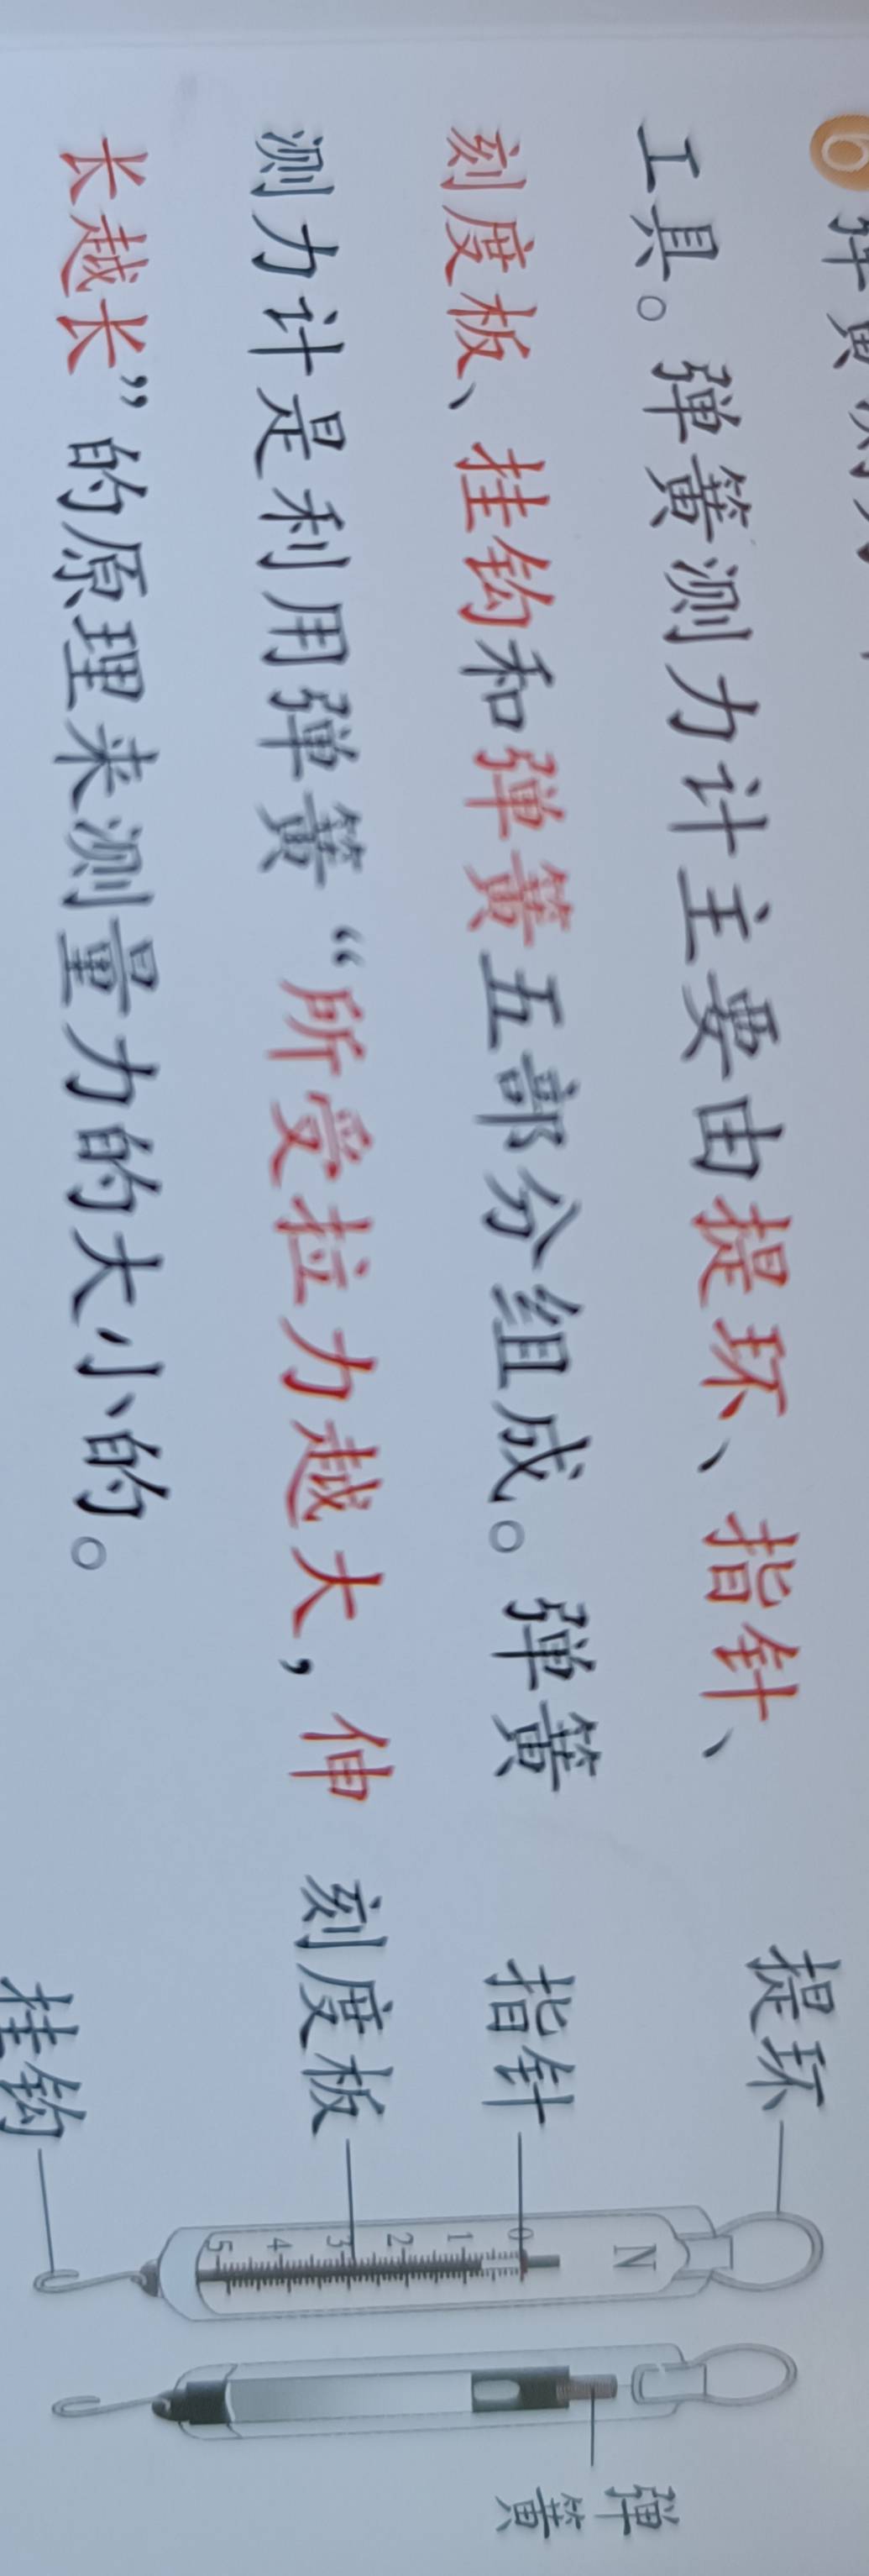 6
工具。弹簧测力计主要由提环、指针、
刻度板、挂钩和弹簧五部分组成。弹簧
测力计是利用弹簧“所受拉力越大，伸
长越长”的原理来测量力的大小的。
提环
指针
刻度板
挂钩
N
0
1
2
3
4
5
弹
簧